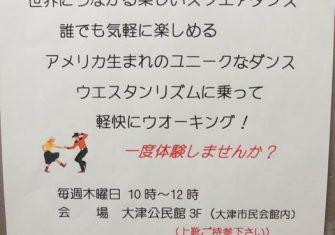 世界につながる楽しいスクエアダンス
誰でも気軽に楽しめる
アメリカ生まれのユニークなダンス
ウエスタンリズムに乗って
軽快にウオーキング！
一度体験しませんか？
毎週木曜日 10時～12時
会　場　大津公民館3F（大津市民会館内）
（上靴ご持参下さい）